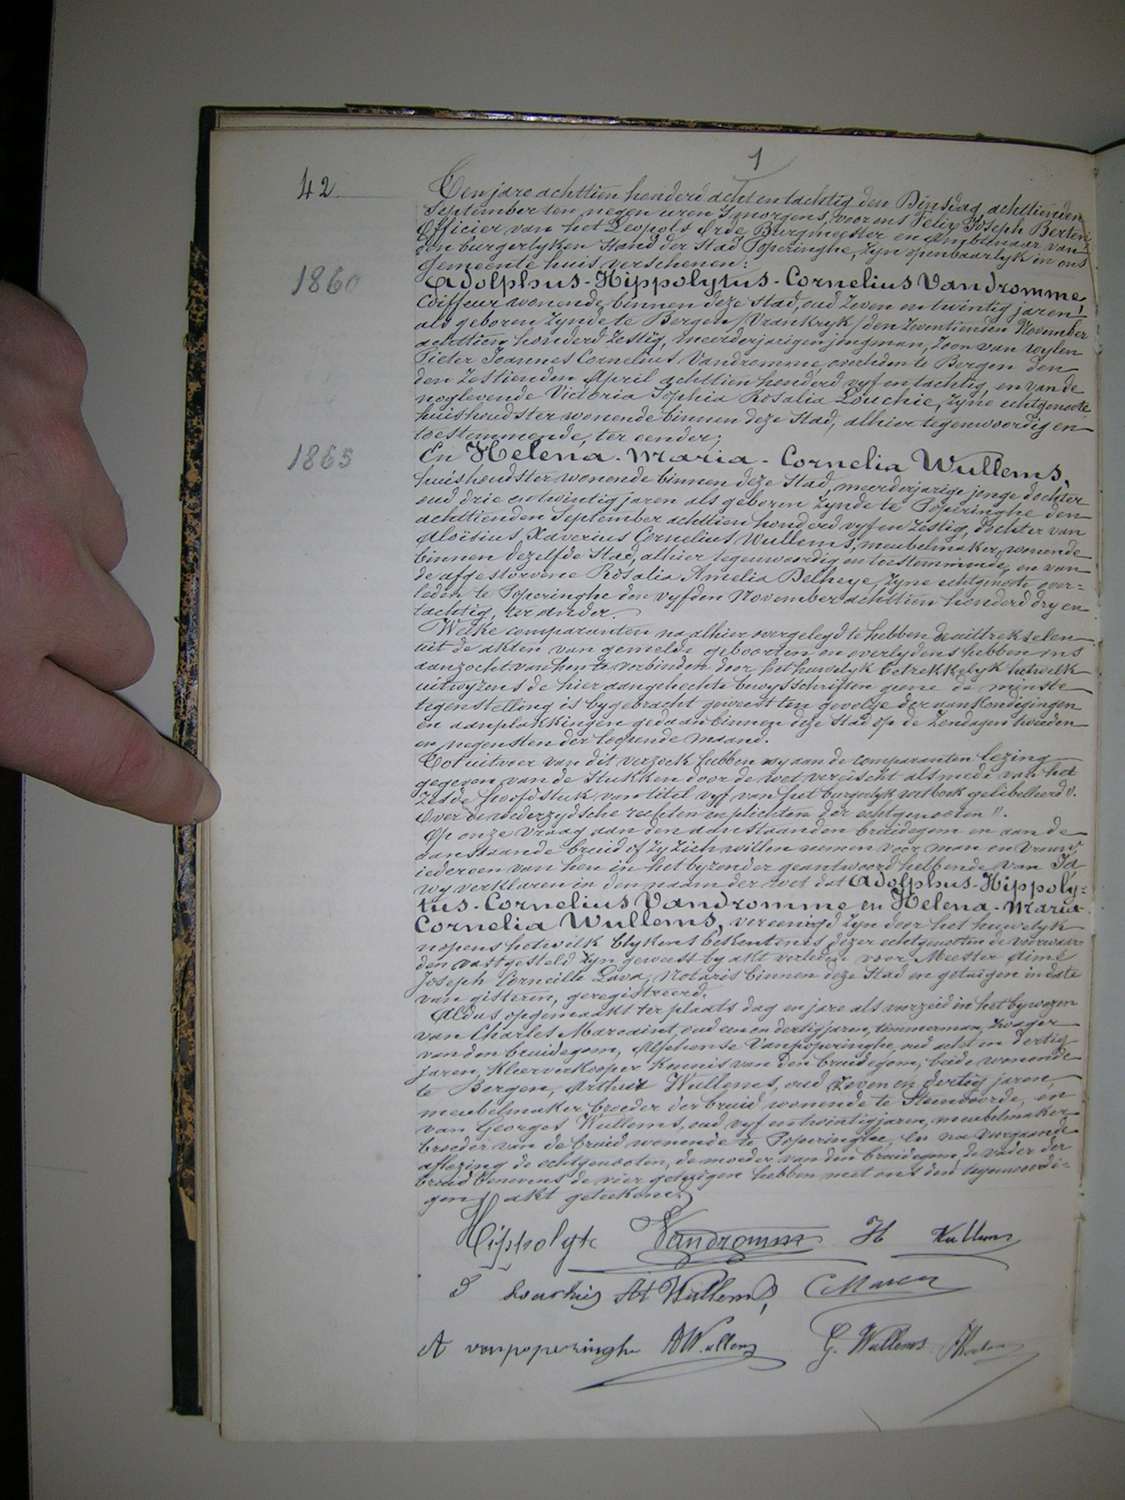 1
42
Ten jare achttien honderd acht en tachtig den Dinsdag achttienden
September ten negen uren 'smorgens, voor ons Felix Joseph Berten,
Officier van het Leopols Orde Burgmeester en Ambtenaar van
den burgerlyken Stand der Stad Poperinghe, zyn openbaarlyk in ons
Gemeente huis verschenen:
1860
Adolphus-Hippolytus-Cornelius Vandromme,
Coiffeur wonende binnen deze Stad, oud zeven en twintig jaren
als geboren zynde te Bergen /Vrankryk/ den zeventienden November
achttien honderd zestig, meerderjarigen jongman, Zoon van wylen
Pieter Joannes Cornelius Vandromme, overleden te Bergen den
den zestienden April achttien honderd vyf en tachtig, en van de
noglevende Victoria Sophia Rosalia Louchie, zyne echtgenoote
huishoudster wonende binnen deze Stad, alhier tegenwoordig en
toestemmende, ter eender;
1865
En Helena-Maria-Cornelia Wullems,
huishoudster wonende binnen deze Stad, meerderjarige jonge dochter
oud drie en twintig jaren als geboren zynde te Poperinghe den
achttienden September achttien honderd vyf en zestig, Dochter van
Aloisius, Xaverius Cornelius Wullems, meubelmaker, wonende
binnen dezelfde Stad, alhier tegenwoordig en toestemmende, en van
de afgestorvene Rosalia Amelia Delheye, zyne echtgenote over-
leden te Poperinghe den vyfden November achttien honderd dry en
tachtig, ter ander.
Welke comparanten na alhier overgelegd te hebben de uittrekselen
uit de akten van gemelde geboorten en overlydens hebben ons
aanzocht van hen te verbinden door het huwelyk betrekkelyk hetwelk
uitwyzens de hier aangehechte bewysschriften geene de minste
tegenstelling is bygebracht geweest ten gevolge der aankondigingen
en aanplakkingen gedaan binnen deze Stad op de Zondagen tweeden
en negensten der loopende maand.
Tot uitvoer van dit verzoek hebben wy aan de comparanten lezing
gegeven van de stukken door de wet vereischt alsmede van het
zesde hoofdstuk van titel vyf van het burgerlyk wetboek gelibelleerd "
Over de wederzydsche rechten en plichten der echtgenooten".
Op onze vraag aan den aanstaanden bruidegom en aan de
aanstaande bruid of zy zich willen nemen voor man en vrouw
iedereen van hen in het byzonder geantwoord hebbende van Ja
wy verklaren in den naam der wet dat Adolphus-Hippoly-
tus-Cornelius Vandromme en Helena-Maria-
Cornelia Wullems, vereenigd zyn door het huwelyk
nopens hetwelk blykens bekentenis dezer echtgenooten de voorwaar
den vastgesteld zyn geweest by akt verleden voor Meester Aimé
Joseph Corneille Lava, Notaris binnen deze Stad en getuigen in date
van gisteren, geregistreerd.
Aldus opgemaakt ter plaats dag en jare als voorzeid in het bywezen
van Charles Marcant, oud een en dertig jaren, timmerman, zwager
van den bruidegom, Alphonse Vanpoperinghe, oud acht en dertig
jaren, kleerverkooper Kennis van den bruidegom, beide wonende
te Bergen, Arthur Wullems, oud zeven en dertig jaren,
meubelmaker, broeder der bruid wonende te Steenvoorde, en
van Georges Wullems, oud vyf en twintig jaren, meubelmaker
broeder van de bruid wonende te Poperinghe, En na voorgaande
aflezing de echtgenooten, de moeder van den bruidegom, de vader der
bruid benevens de vier getuigen hebben met ons den tegenwoordi-
gen akt geteekend.
Hippolyte Vandromme H Wullems
S Louchie At Wullems C Marcant
A vanpoperinghe A Wullems G. Wullems F Berten